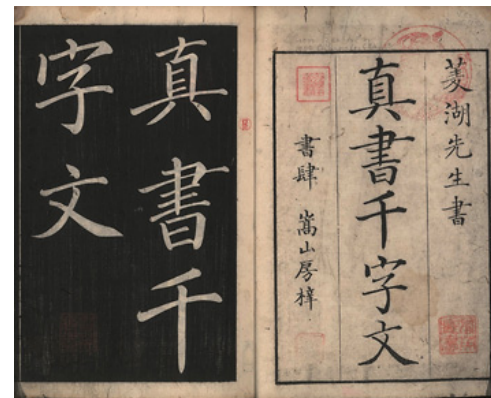 菱湖先生書
真書千字文
書肆 嵩山房梓
真書千
字文